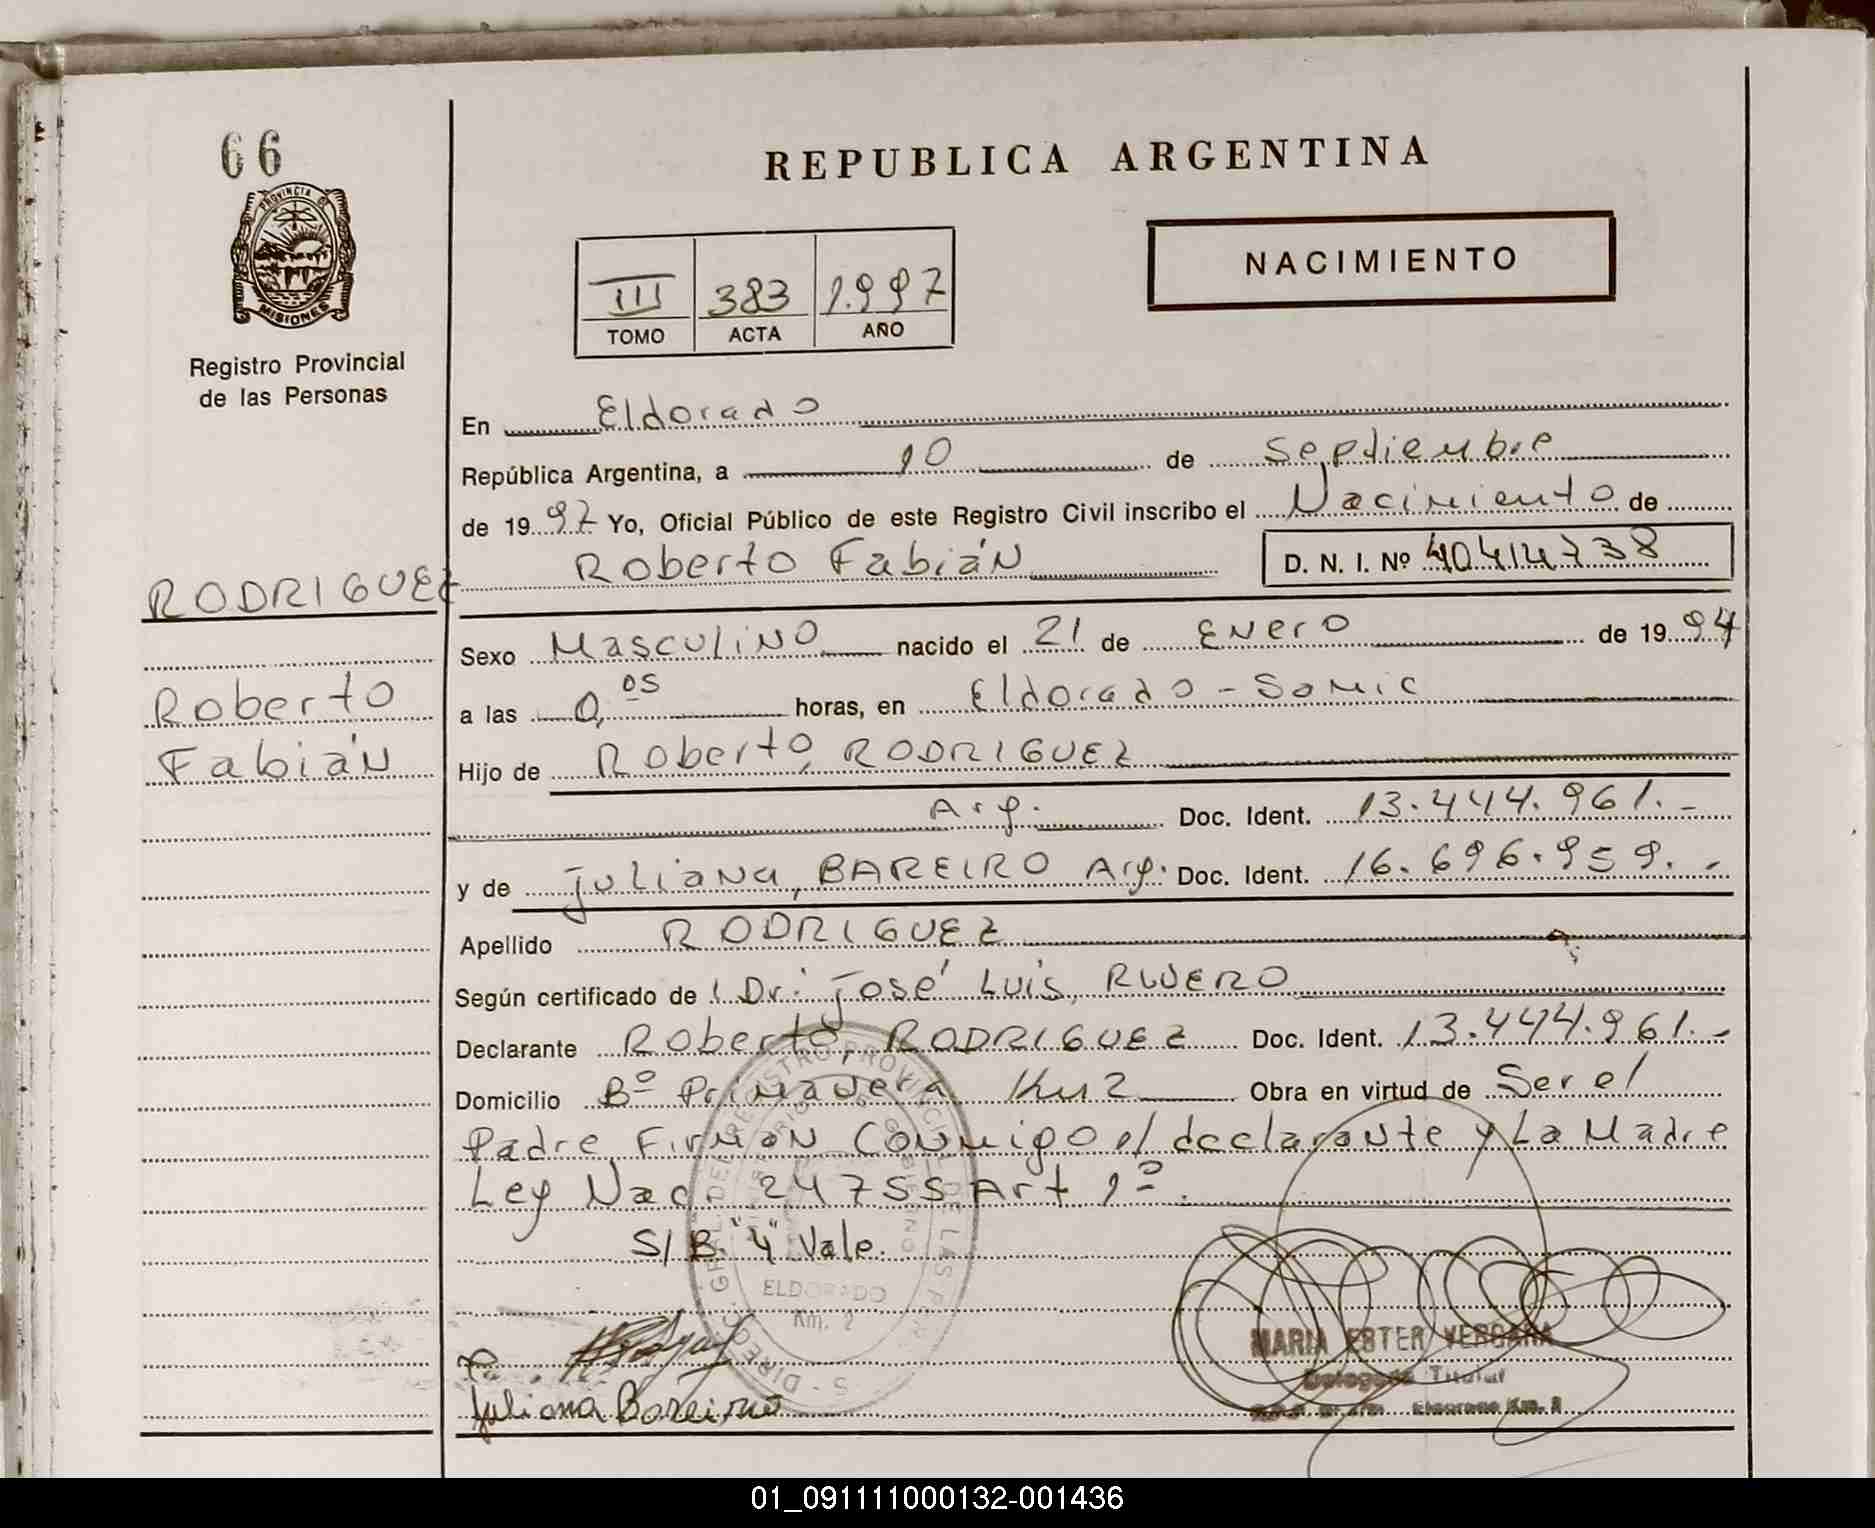 66
PROVINCIA DE
MISIONES
Registro Provincial
de las Personas
RODRIGUEZ
Roberto
Fabián
REPUBLICA ARGENTINA
III 383 1.997
TOMO ACTA AÑO
NACIMIENTO
En Eldorado
República Argentina, a 10 de Septiembre
de 1997 Yo, Oficial Público de este Registro Civil inscribo el Nacimiento de
Roberto Fabián D. N. I. Nº 40414738
Sexo Masculino nacido el 21 de Enero de 1994
a las 0,05 horas, en Eldorado - Samic
Hijo de Roberto, RODRIGUEZ
Arg. Doc. Ident. 13.444.961.-
y de Juliana, BAREIRO Arg. Doc. Ident. 16.696.959.-
Apellido RODRIGUEZ
Según certificado de Dr: José Luis, RIVERO
Declarante Roberto, RODRIGUEZ Doc. Ident. 13.444.961.-
Domicilio Bº Primavera Km 2 Obra en virtud de Ser el
Padre Firman Conmigo el declarante y La Madre
Ley Nac. 24755 Art 1º.
S/B. "4" Vale.
ELDORADO
Km. 2
Juliana Bareiro
MARIA ESTER VERGARA
Delegada Titular
Eldorado Km. 2
01_091111000132-001436